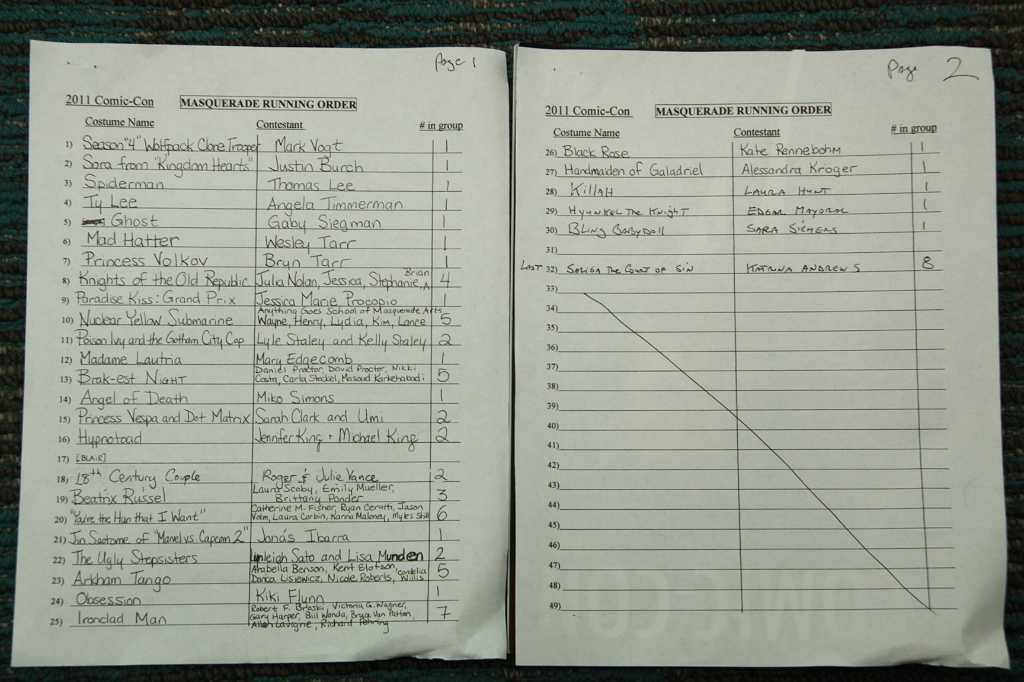 Page 1
2011 Comic-Con MASQUERADE RUNNING ORDER
Costume Name Contestant # in group
1) Season "4" Wolfpack Clone Trooper Mark Vogt 1
2) Sora from "Kingdom Hearts" Justin Burch 1
3) Spiderman Thomas Lee 1
4) Ty Lee Angela Timmerman 1
5) Ghost Gaby Siegman 1
6) Mad Hatter Wesley Tarr 1
7) Princess Volkov Bryn Tarr 1
8) Knights of the Old Republic Julia Nolan, Jessica, Stephanie, Brian 4
9) Paradise Kiss: Grand Prix Jessica Marie Procopio 1
Anything Goes School of Masquerade Arts
10) Nuclear Yellow Submarine Wayne, Henry, Lydia, Kim, Lance 5
11) Poison Ivy and the Gotham City Cop Lyle Staley and Kelly Staley 2
12) Madame Lautria Mary Edgecomb 1
Daniel Proctor, David Proctor, Nikki
13) Brak-est Night Costa, Carla Stockel, Masoud 5
14) Angel of Death Miko Simons 1
15) Princess Vespa and Dot Matrix Sarah Clark and Umi 2
16) Hypnotoad Jennifer King + Michael King 2
17) [BLAIR]
18) 18th Century Couple Roger & Julie Vance 2
Laura Scoby, Emily Mueller,
19) Beatrix Russel Brittany Ponder 3
Catherine M. Fisher, Ryan Jason
20) "You're the Hun that I Want" Laura Corbin, Karina Maloney, Myles 6
21) Jin Saotome of "Marvel vs. Capcom 2" Jonás Ibarra 1
22) The Ugly Stepsisters Lynleigh Sato and Lisa Munden 2
Arabella Benson, Kent Elofson, Cordelia
23) Arkham Tango Danca Lisiewicz, Nicole Roberts, Willis 5
24) Obsession Kiki Flynn 1
Robert F. Victoria G. Wagner,
25) Ironclad Man Gary Harper, Bill Wanda, Bryce Van Patten, 7
Allan Lavigne, Richard
Page 2
2011 Comic-Con MASQUERADE RUNNING ORDER
Costume Name Contestant # in group
26) Black Rose Kate Rennebohm 1
27) Handmaiden of Galadriel Alessandra Kroger 1
28) Killah Laura Hunt 1
29) Hyunkel the Knight Edgar Mayoral 1
30) Bling Babydoll Sara Siemens 1
31)
LAST 32) Saliga the Count of Sin Katrina Andrews 8
33)
34)
35)
36)
37)
38)
39)
40)
41)
42)
43)
44)
45)
46)
47)
48)
49)